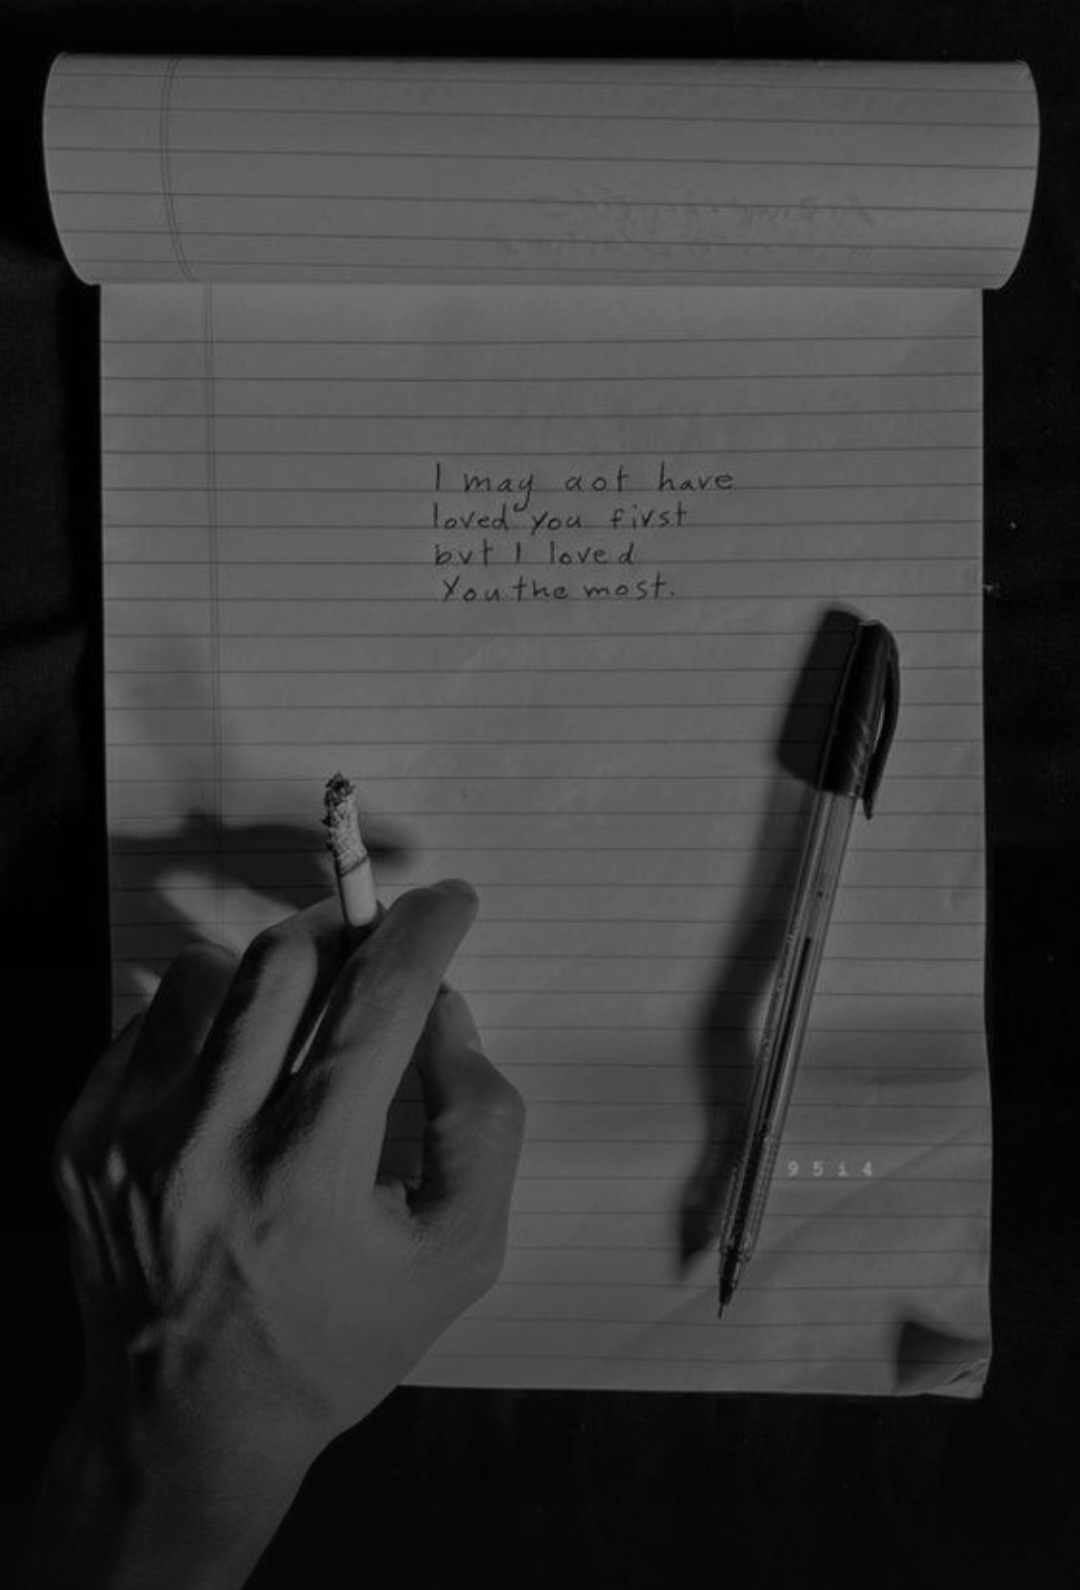 I may aot have
loved you first
bvt I loved
You the most.
95i4